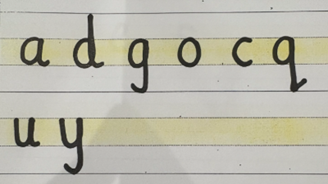 a d g o c q
u y